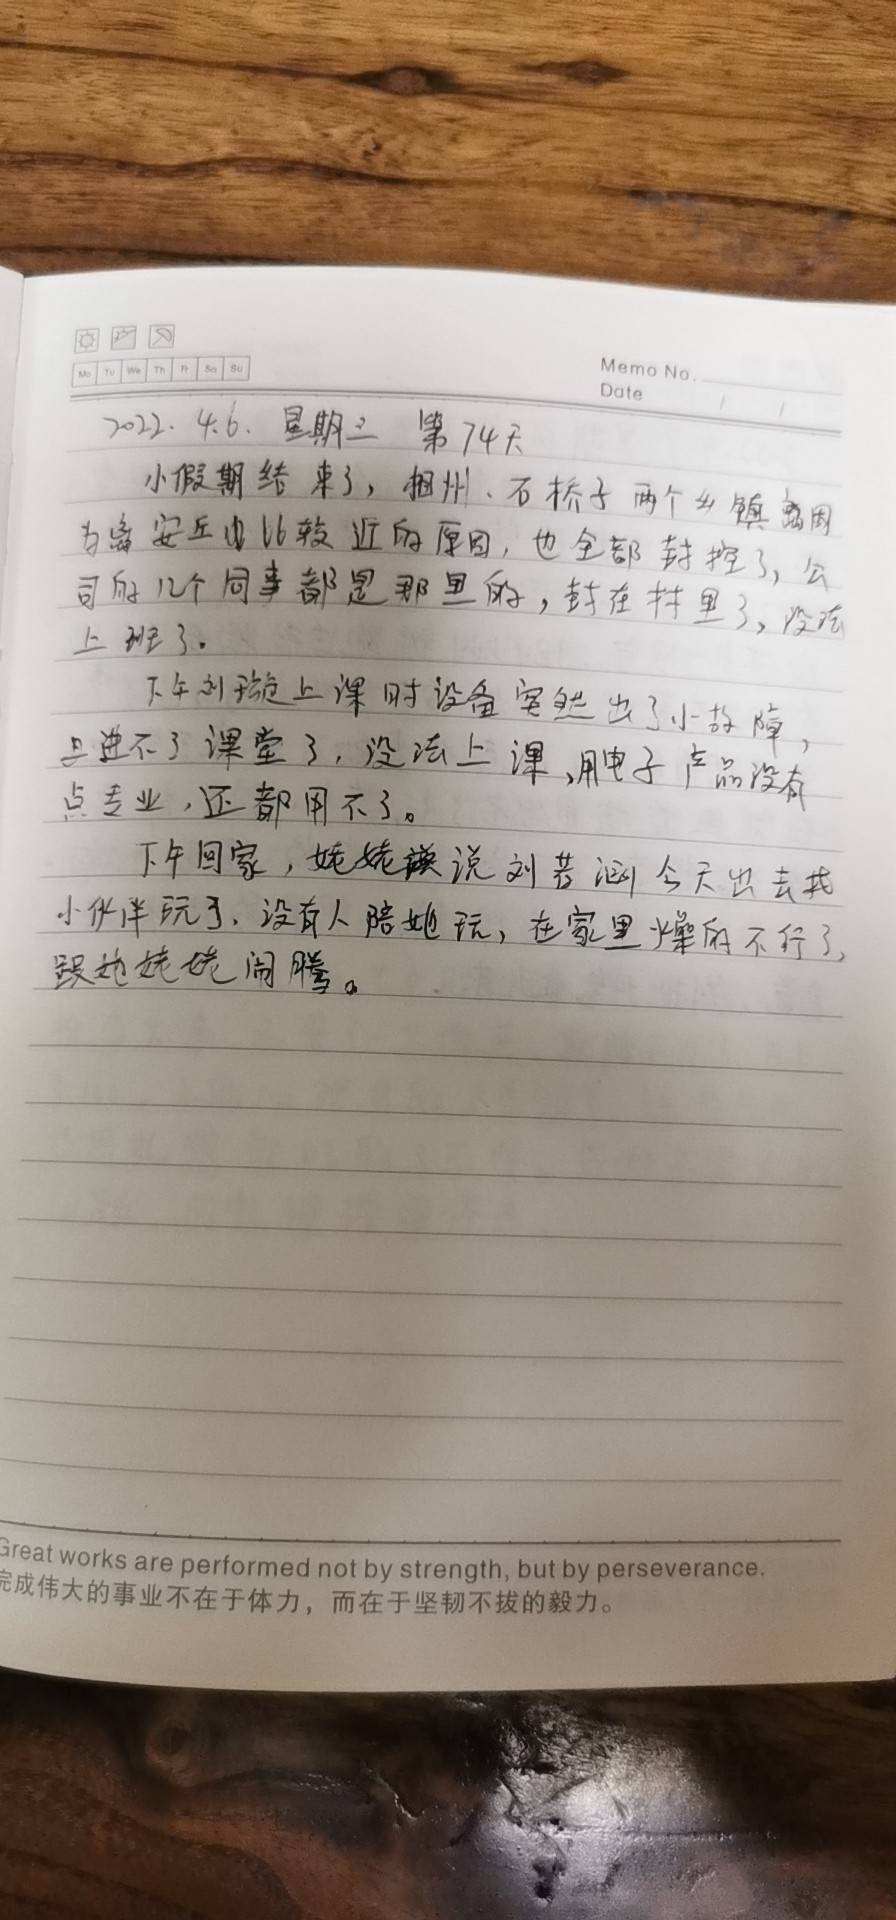 Mo Tu We Th Fr Sa Su
Memo No.
Date / /
2022. 4.6. 星期三 第74天
小假期结束了，相州、石桥子两个乡镇因
为离安丘比较近的原因，也全部封控了，公
司的几个同事都是那里的，封在村里了，没法
上班了。
下午刘璇上课时设备突然出了小故障，
且进不了课堂了，没法上课，用电子产品没有
点专业，还都用不了。
下午回家，姥姥说刘若涵今天出去找
小伙伴玩了，没有人陪她玩，在家里燥的不行了，
跟她姥姥闹腾。
Great works are performed not by strength, but by perseverance.
完成伟大的事业不在于体力，而在于坚韧不拔的毅力。